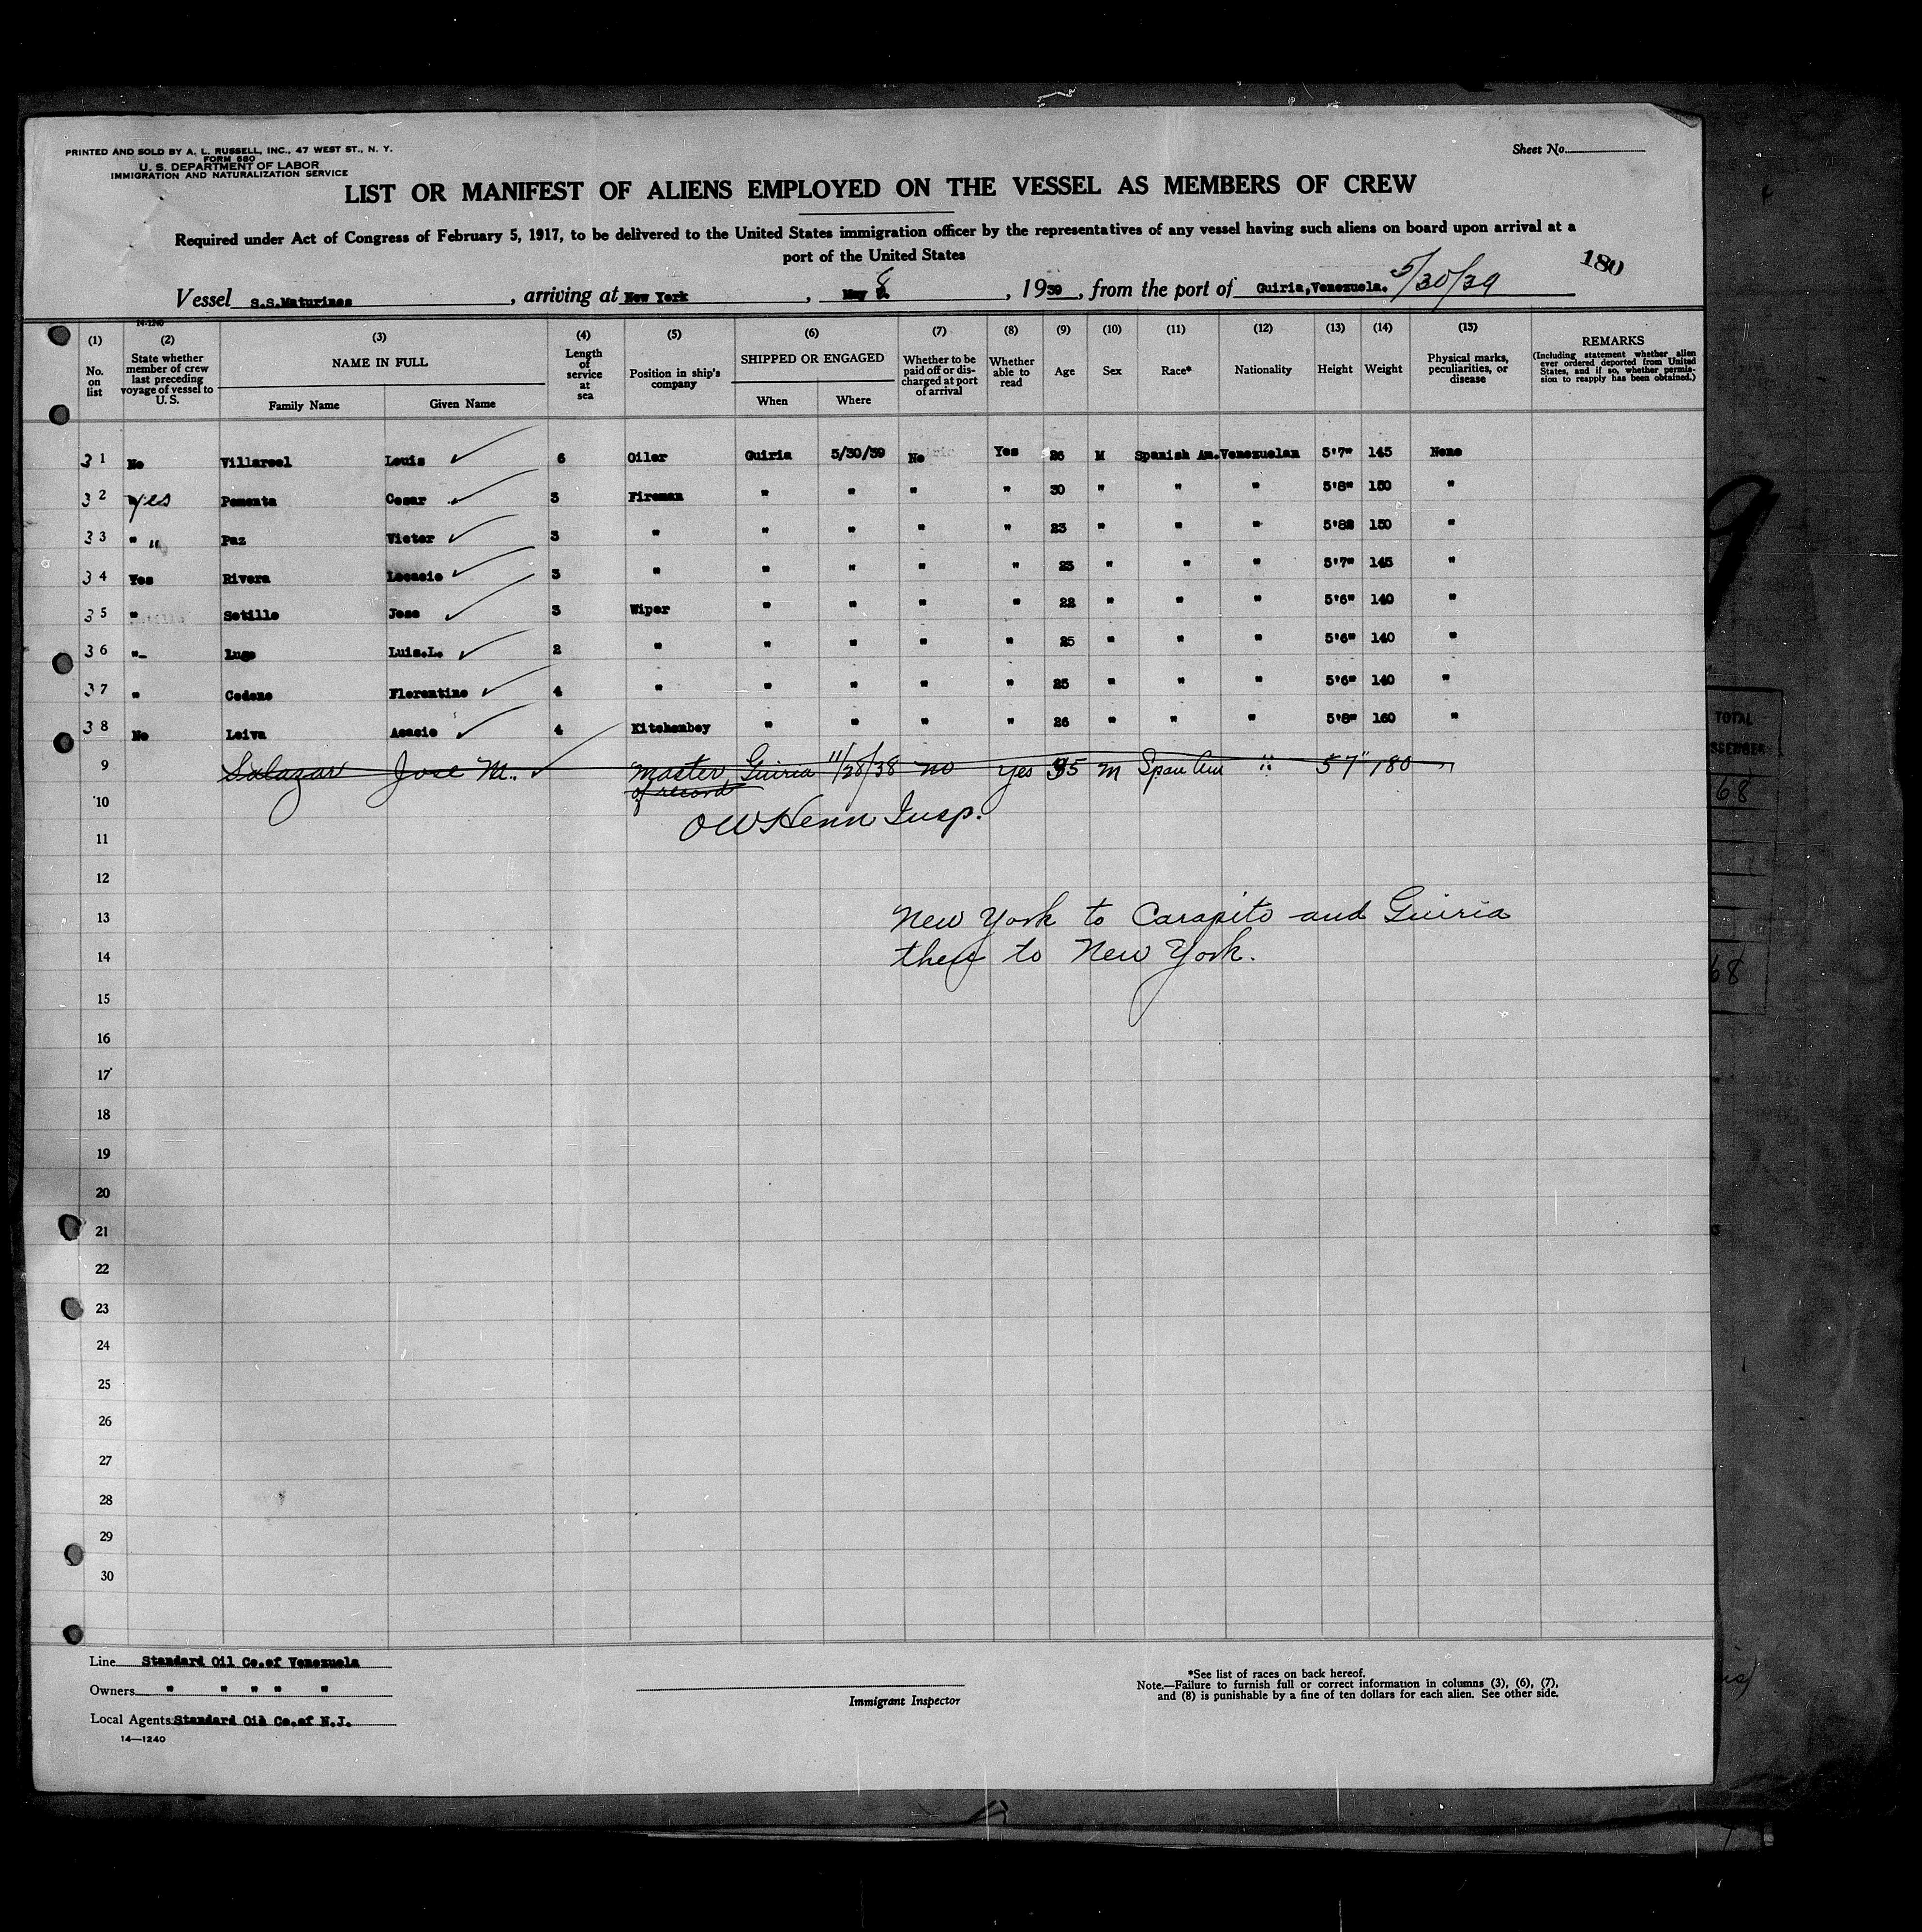 PRINTED AND SOLD BY A. L. RUSSELL, INC., 47 WEST ST., N. Y.
FORM 680
U. S. DEPARTMENT OF LABOR
IMMIGRATION AND NATURALIZATION SERVICE
Sheet No.
LIST OR MANIFEST OF ALIENS EMPLOYED ON THE VESSEL AS MEMBERS OF CREW
Required under Act of Congress of February 5, 1917, to be delivered to the United States immigration officer by the representatives of any vessel having such aliens on board upon arrival at a
port of the United States
180
Vessel S.S.Maturines, arriving at New York, May 8, 1939, from the port of Guiria,Venezuela. 5/30/39
14-1240
(1) (2) (3) (4) (5) (6) (7) (8) (9) (10) (11) (12) (13) (14) (15)
No. on list
State whether member of crew last preceding voyage of vessel to U. S.
NAME IN FULL
Family Name Given Name
Length of service at sea
Position in ship's company
SHIPPED OR ENGAGED
When Where
Whether to be paid off or discharged at port of arrival
Whether able to read
Age
Sex
Race*
Nationality
Height
Weight
Physical marks, peculiarities, or disease
REMARKS
(Including statement whether alien ever ordered deported from United States, and if so, whether permission to reapply has been obtained.)
31 No Villareel Louis 6 Oiler Guiria 5/30/39 No Yes 26 M Spanish Am. Venezuelan 5'7" 145 None
32 Yes Pementa Cesar 3 Fireman " " " " 30 " " " 5'8" 150 "
33 " " Paz Victor 3 " " " " " 23 " " " 5'82 150 "
34 Yes Rivera 3 " " " " " 23 " " " 5'7" 145 "
35 " Setille Jose 3 Wiper " " " " 22 " " " 5'6" 140 "
36 " Lugo Luis.L. 2 " " " " " 25 " " " 5'6" 140 "
37 " Cedeno Florentino 4 " " " " " 25 " " " 5'6" 140 "
38 No Leiva Acacio 4 Kitchenboy " " " " 26 " " " 5'8" 160 "
9 Salazar Jose M. Master of record Guiria 11/28/38 no yes 35 M Span Am " 5 7" 180
10 O W Henn Insp.
11
12
13 New York to Carapito and Guiria
14 then to New York.
15
16
17
18
19
20
21
22
23
24
25
26
27
28
29
30
Line Standard Oil Co.of Venezuela
Owners " " " " "
Local Agents Standard Oil Co.of N.J.
14—1240
Immigrant Inspector
*See list of races on back hereof.
Note.—Failure to furnish full or correct information in columns (3), (6), (7),
and (8) is punishable by a fine of ten dollars for each alien. See other side.
TOTAL
68
68